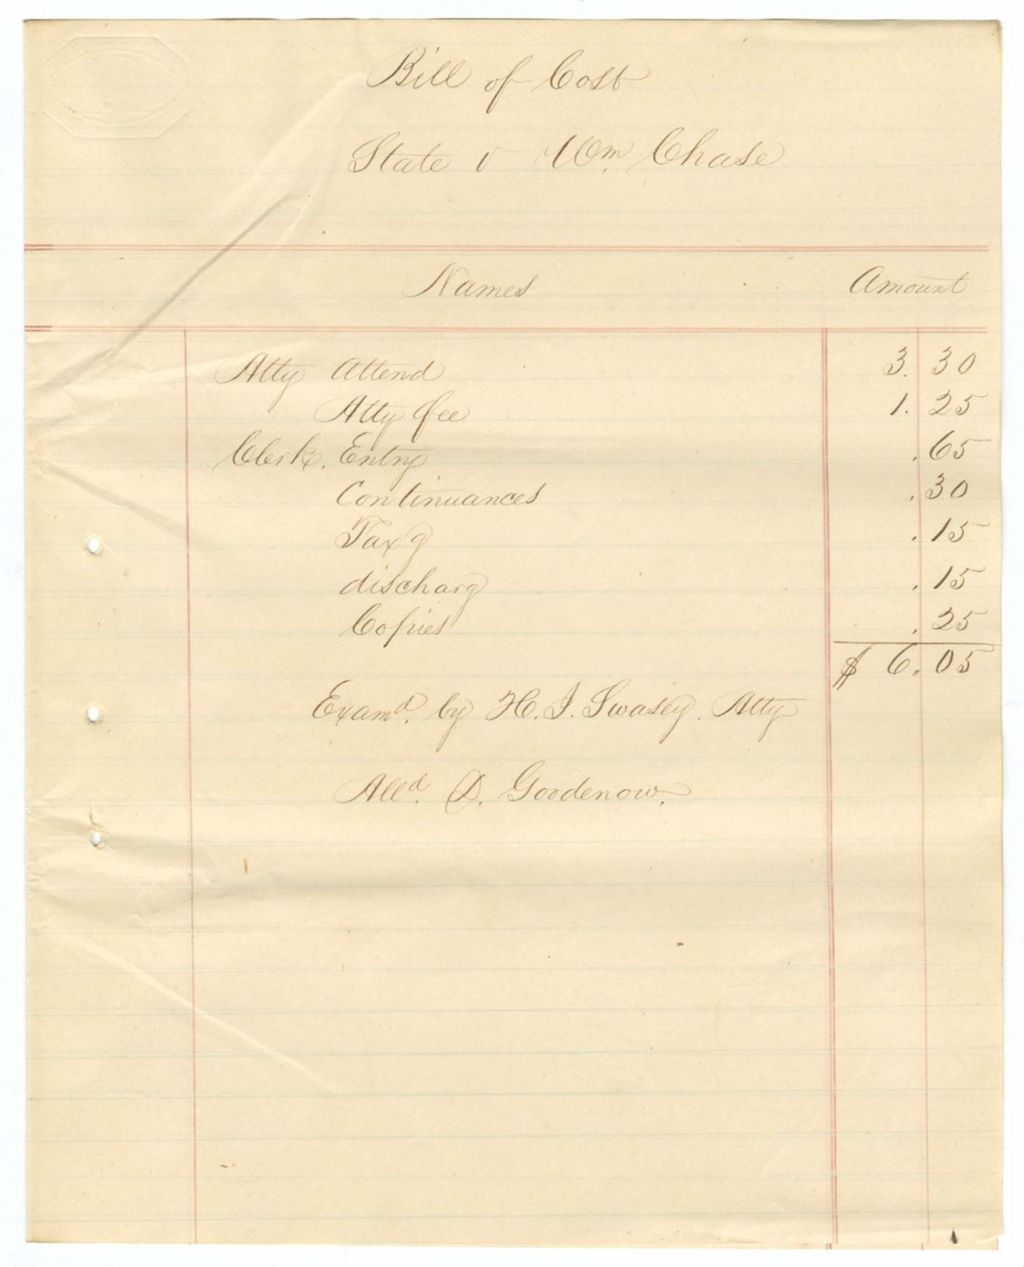 Bill of Cost
State v Wm. Chase
Names Amount
Atty Attend 3. 30
Atty fee 1. 25
Clerk. Entry .65
Continuances .30
Taxg .15
discharg .15
Copies .25
$ 6. 05
Examd. by H. I. Swasey. Atty
Alld. D. Goodenow.